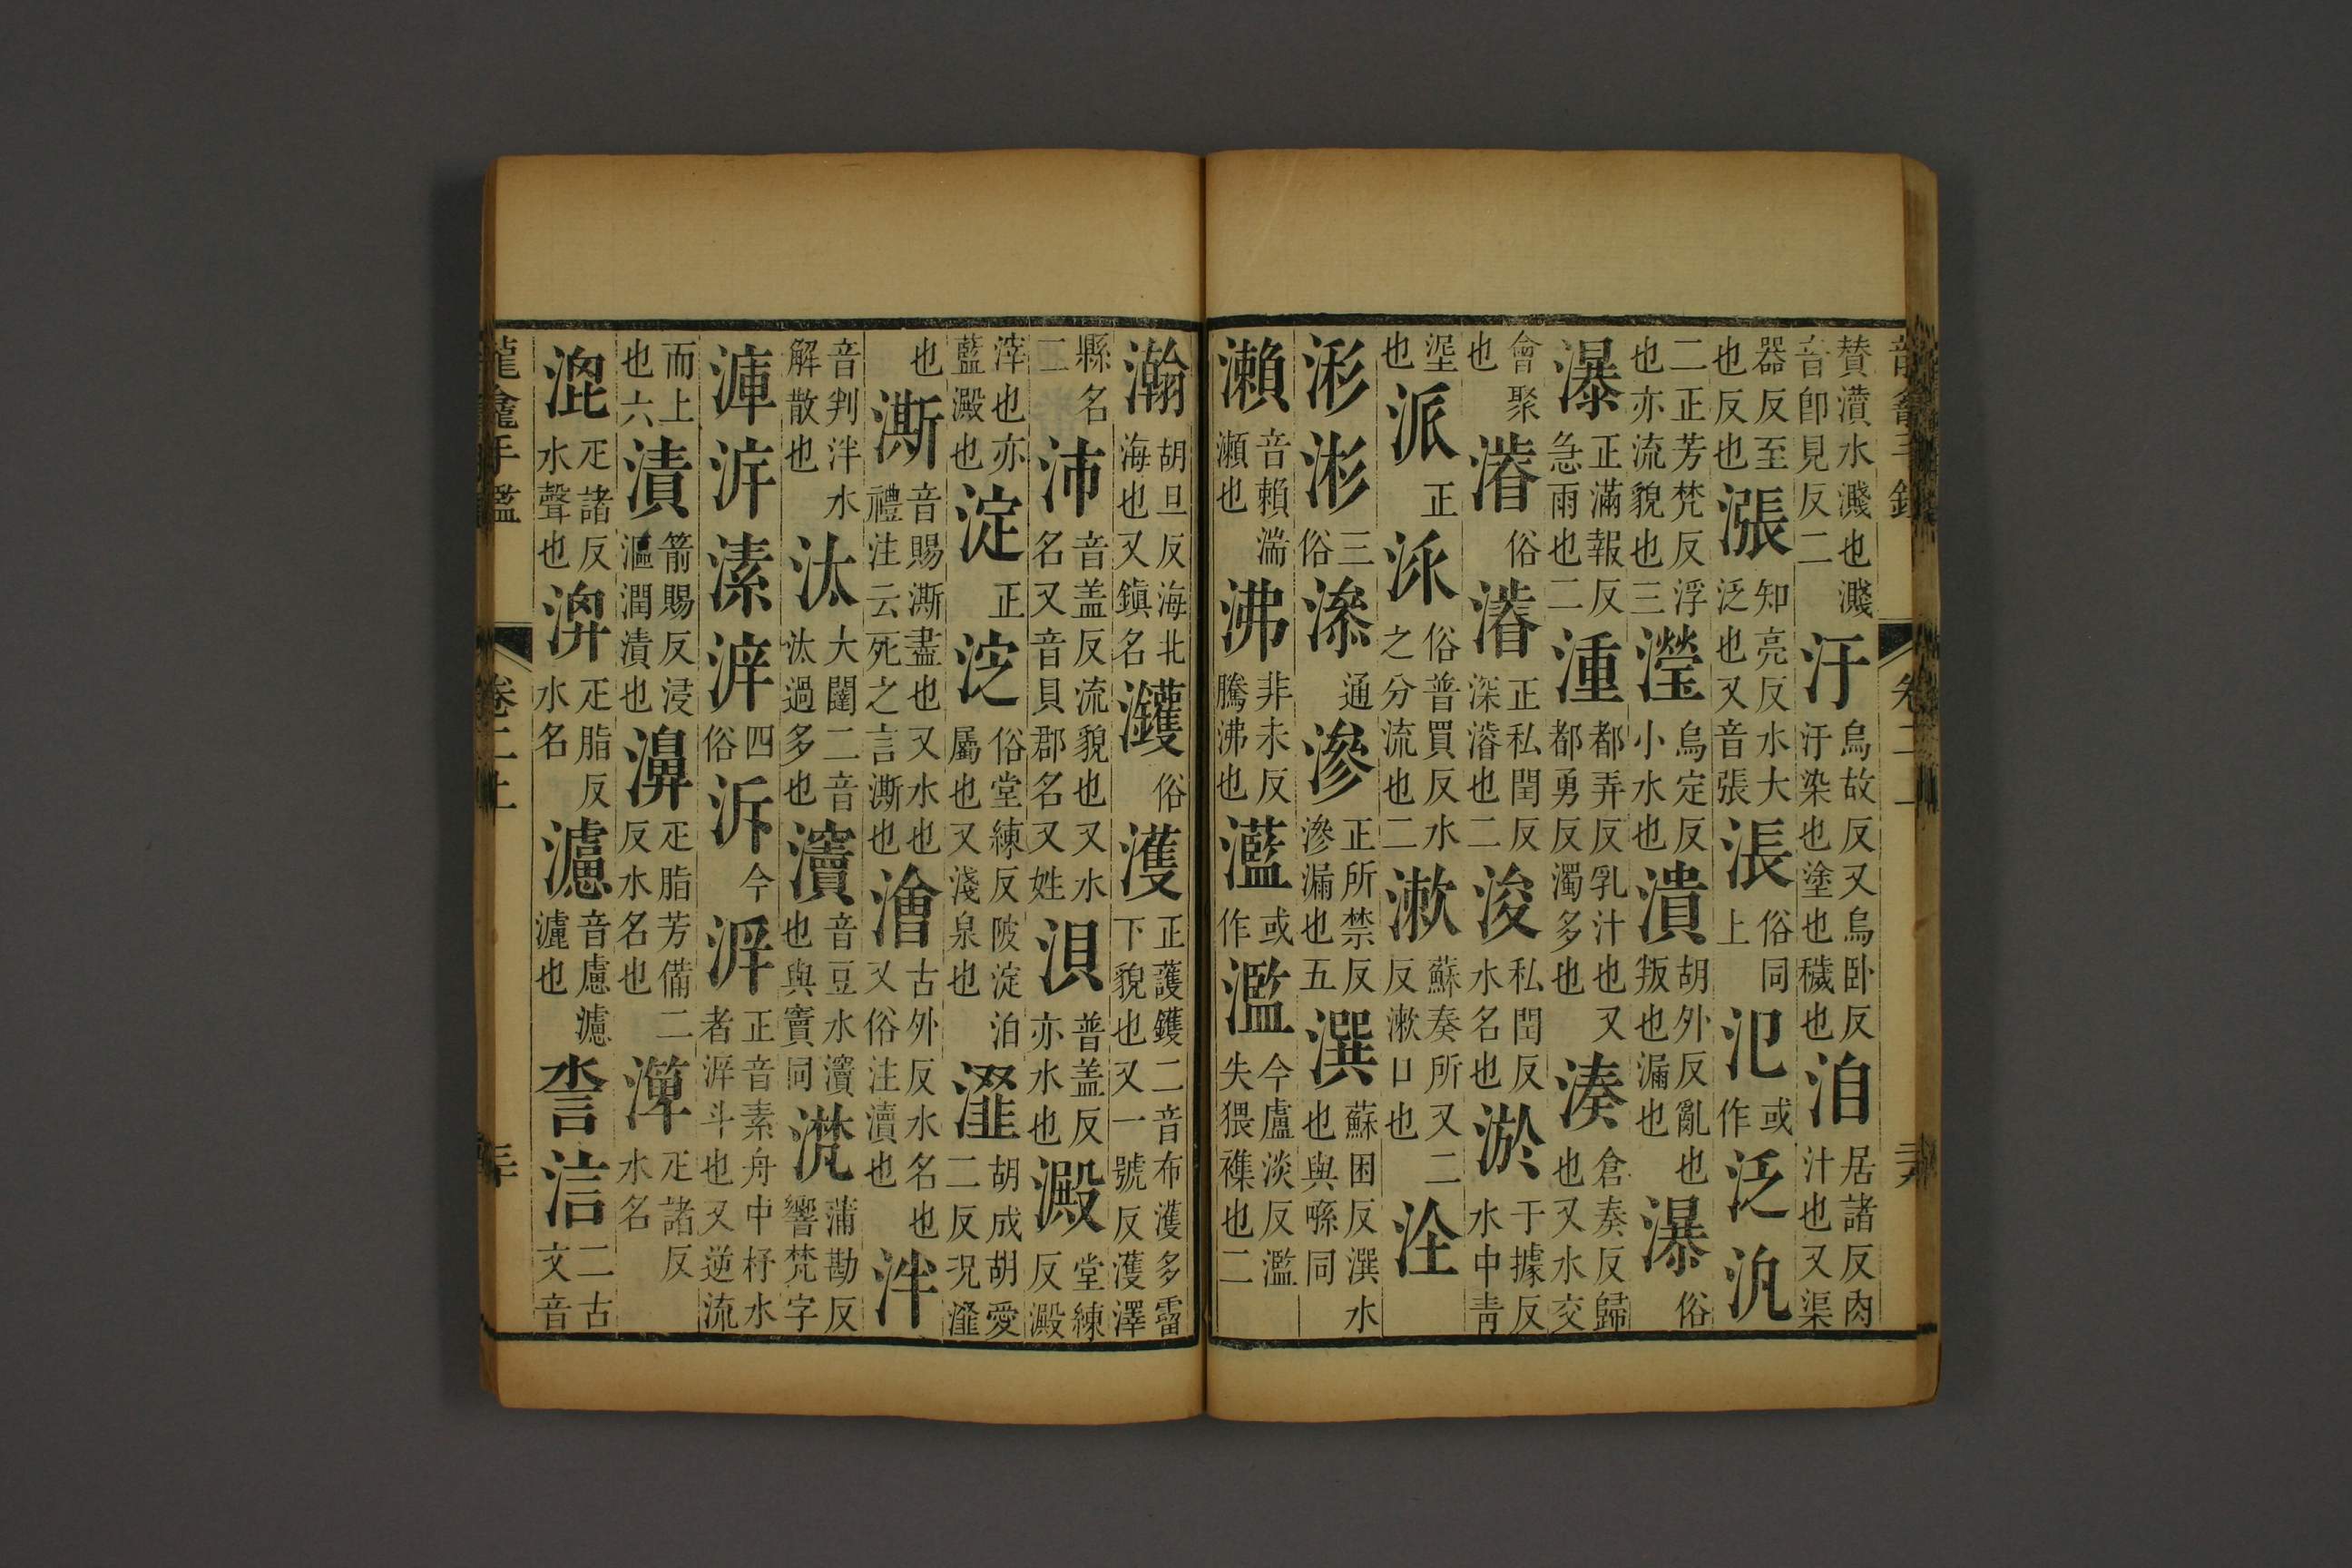 贊濆水濺也濺音卽見反二汙烏故反又烏卧反汙染也塗也穢也洎居諸反肉汁也又渠
器反至也反也漲知亮反水大泛也又音張涱俗同上氾或作泛汎
二正芳梵反浮也亦流貌也三瀅烏定反小水也潰胡外反亂也叛也漏也瀑俗
瀑正滿報反急雨也二湩都弄反乳汁也又都勇反濁多也湊倉奏反歸也又水交
會聚也濬俗濬正私閏反深濬也二浚私閏反水名也淤于據反水中靑
埿也派正泒俗普買反水之分流也二漱蘇奏所又二反漱口也洤
浵涁三俗渗通滲正所禁反滲漏也五潠蘇困反潠水也與噀同
瀨音賴湍瀬也沸非未反騰沸也灆或作濫今盧淡反濫失猥襍也二
瀚胡旦反海北海也又鎮名鑊俗濩正護鑊二音布濩多霤下貌也又一號反濩澤
縣名二沛音盖反流貌也又水名又音貝郡名又姓浿普盖反亦水也澱堂練反澱
滓也亦藍澱也淀正㳸俗堂練反陂淀泊屬也又淺泉也瀣胡成胡愛二反沆瀣
也澌音賜澌盡也又水也禮注云死之言澌也澮古外反水名也又俗注瀆也泮
音判泮水解散也汰大闥二音汰過多也瀆音豆水瀆也與竇同滼蒲勘反響梵字
四俗泝今泝正音素舟中杼水者泝斗也又逆流
而上也六漬箭賜反浸漚潤漬也濞疋脂芳備二反水名也潷疋諸反水名
淠疋諸反水聲也淠疋脂反水名濾音慮濾漉也沯湇二古文音
龍龕手鑑 卷二上